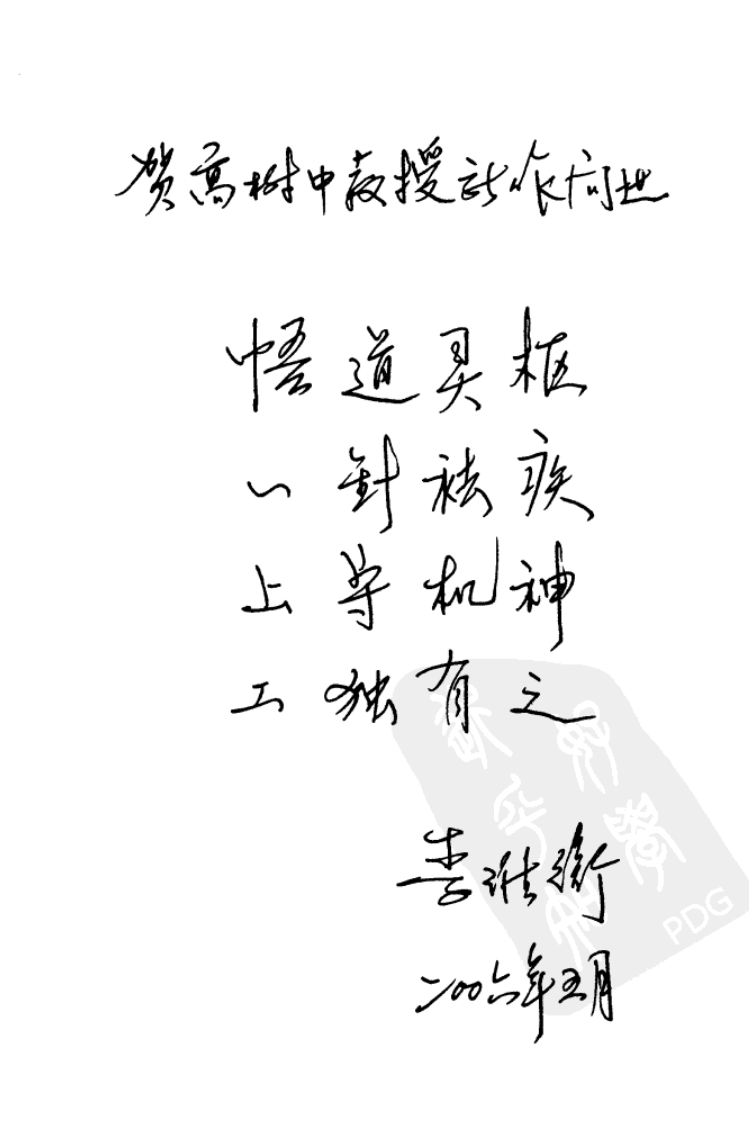 贺高树中教授新作问世
悟道灵枢
以针祛疾
上守机神
工独有之
李维衡
二〇〇六年五月
PDG